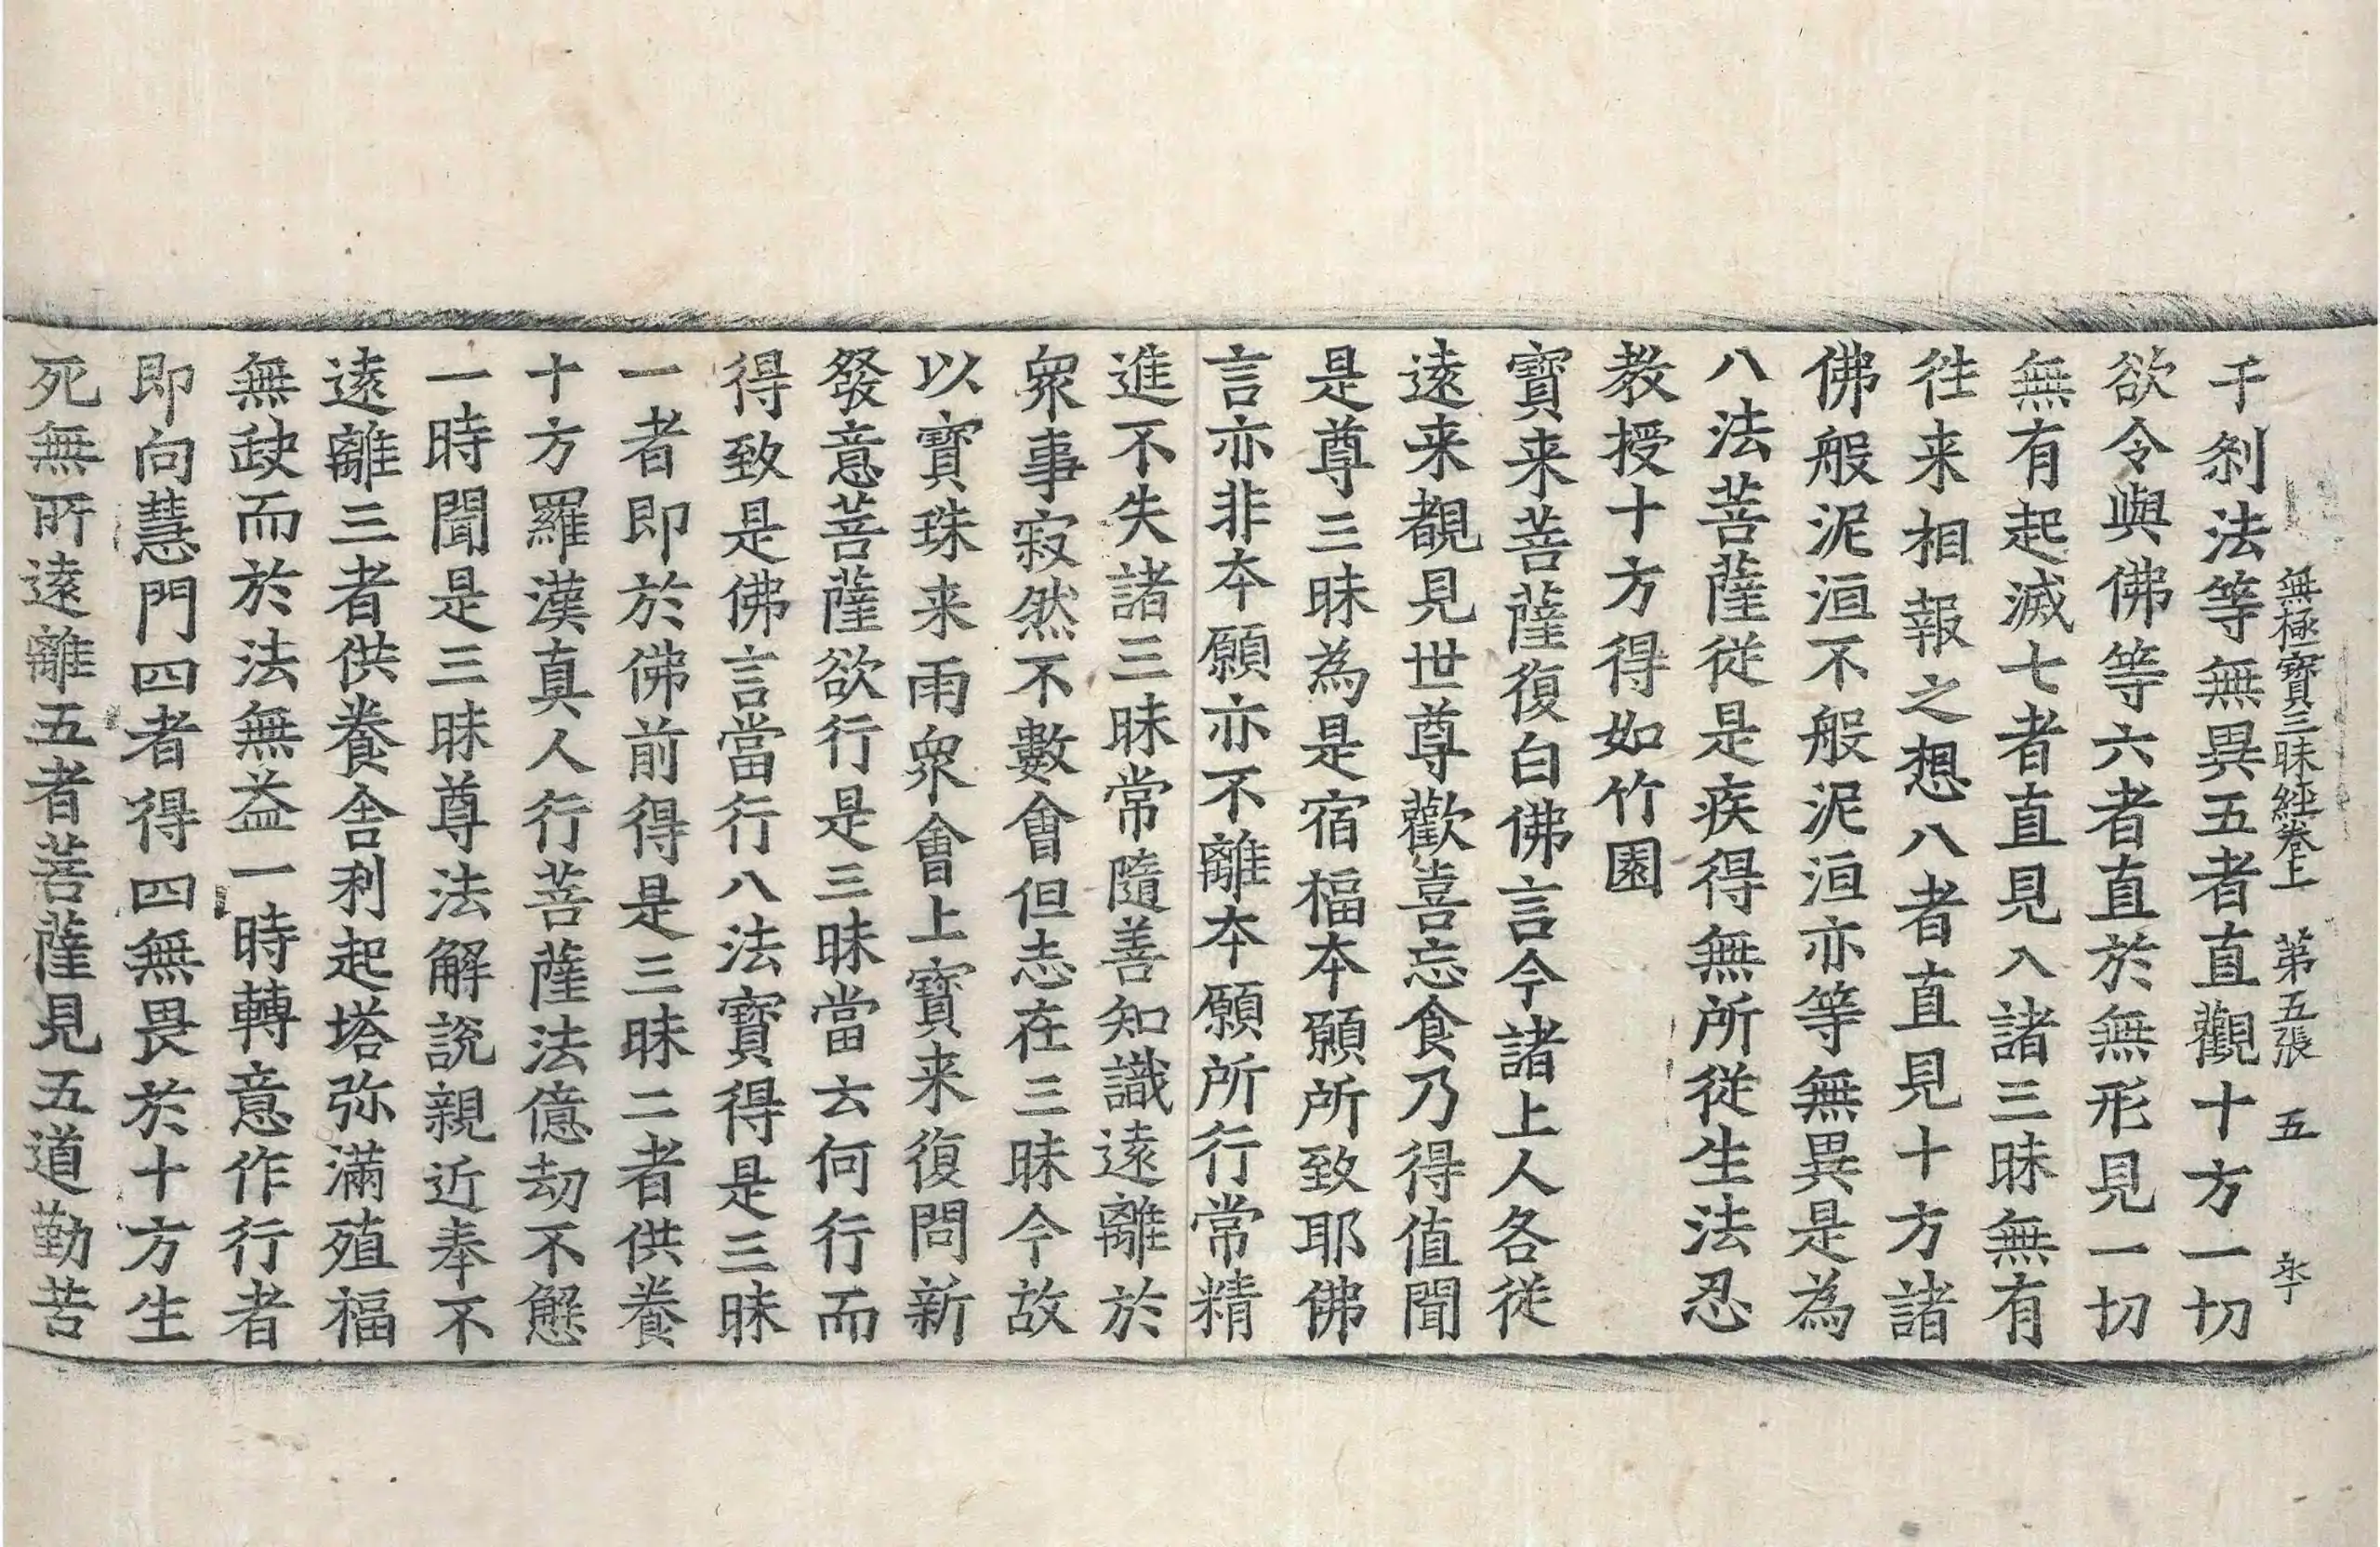 無極寶三昧經卷上　第五張　五
千剎法等無異五者直觀十方一切
欲令與佛等六者直於無形見一切
無有起滅七者直見入諸三昧無有
徃来相報之想八者直見十方諸
佛般泥洹不般泥洹亦等無異是為
八法菩薩従是疾得無所従生法忍
教授十方得如竹園
寶来菩薩復白佛言今諸上人各従
逺来覩見世尊歡喜忘食乃得值聞
是尊三昧為是宿福夲願所致耶佛
言亦非夲願亦不離夲願所行常精
進不失諸三昧常隨善知識逺離於
衆事寂然不數會但志在三昧今故
以寶珠来雨衆會上寶来復問新
發意菩薩欲行是三昧當云何行而
得致是佛言當行八法寶得是三昧
一者即於佛前得是三昧二者供養
十方羅漢真人行菩薩法億劫不懈
一時聞是三昧尊法解説親近奉不
逺離三者供養舍利起塔弥滿殖福
無䟽而於法無益一時轉意作行者
即向慧門四者得四無畏於十方生
死無所逺離五者菩薩見五道勤苦